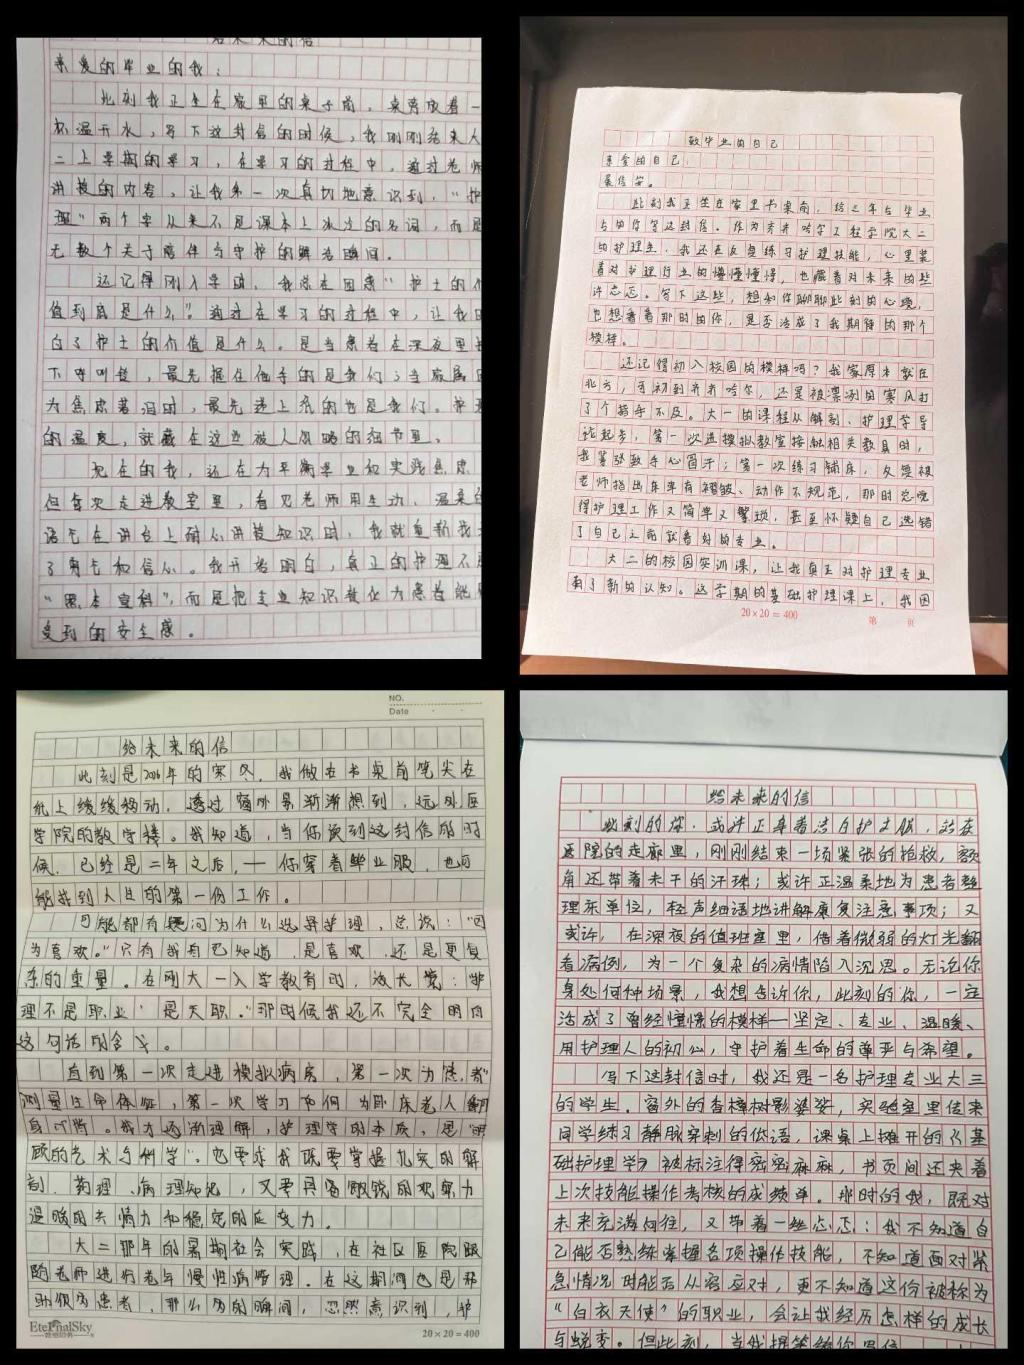 给未来的信
亲爱的毕业的我：
此刻我正坐在家里的桌子前，桌旁放着一
杯温开水，写下这封信的时候，我刚刚结束大
二上学期的学习，在学习的过程中，通过老师
讲授的内容，让我第一次真切地意识到，“护
理”两个字从来不是课本上冰冷的名词，而是
无数个关于陪伴与守护的鲜活瞬间。
还记得刚入学时，我总在困惑“护士的价
值到底是什么”。通过在学习的过程中，让我明
白了护士的价值是什么。是当患者在深夜里按
下呼叫铃，最先握住他手的是我们；当家属因
为焦虑落泪时，最先递上
的温度，就藏在这些被人忽略的细节里。
现在的我，还在为平衡学业和实践焦虑，
但每次走进教室里，看见老师用生动、温柔的
语气在讲台上耐心讲授知识时，我就重新
了勇气和信心。我开始明白，真正的护理不是
“照本宣科”，而是把专业知识转化为患者能感
受到的安全感。
致毕业的自己
亲爱的自己：
展信安。
此刻我正坐在家里书桌前，给三年后毕业
后的你写这封信。作为齐齐哈尔工程学院大二
的护理生，我还在反复练习护理技能，心里装
着对护理行业的懵懵懂懂，也藏着对未来的些
许忐忑。写下这些，想和你聊聊此刻的心境，
也想看看那时的你，是否活成了我期待的那个
模样。
还记得初入校园的模样吗？我家原本就在
北方，可初到齐齐哈尔，还是被凛冽的寒风打
了个措手不及。大一的课程从解剖、护理学导
论起步，第一次进模拟教室接触相关教具时，
我紧张致手心冒汗；第一次练习铺床，反复被
老师指出床单有褶皱、动作不规范，那时总觉
得护理工作又简单又繁琐，甚至怀疑自己选错
了自己之前就看好的专业。
大二的校园实训课，让我真正对护理专业
有了新的认知。这学期的基础护理课上，我因
20×20=400 第 页
NO.
Date
给未来的信
此刻是2026年的寒冬，我做在书桌前笔尖在
纸上缓缓移动，透过窗外景渐渐想到，远处医
学院的教学楼。我知道，当你读到这封信的时
候，已经是二年之后，——你穿着毕业服，也可
能找到人生的第一份工作。
可能都有疑问为什么选择护理，总说：“因
为喜欢。”只有我自己知道，是喜欢，还是更复
杂的重量。在刚大一入学教育时，
理不是职业，是天职。”那时候我还不完全明白
这句话的含义。
直到第一次走进模拟病房，第一次为“患者”
测量生命体征，第一次学习如何为卧床老人翻
身叩背。我才逐渐理解，护理学的本质，是“照
顾的艺术与科学”。它要求我既要掌握扎实的解
剖、药理、病理知识，又要具备敏锐的观察力
温暖的共情力和稳定的应变力。
大二那年的暑期社会实践，在社区医院跟
随老师进行老年慢性病管理。在这期间也是帮
助领为患者，那么多的瞬间，忽然意识到，护
EternalSky
20×20=400
给未来的信
此刻的你，或许正穿着洁白护士服，站在
医院的走廊里，刚刚结束一场紧张的抢救，额
角还带着未干的汗珠；或许正温柔地为患者整
理床单位，轻声细语地讲解康复注意事项；又
或许，在深夜的值班室里，借着微弱的灯光翻
看病例，为一个复杂的病情陷入沉思。无论你
身处何种场景，我想告诉你，此刻的你，一定
活成了曾经憧憬的模样—坚定、专业、温暖、
用护理人的初心，守护着生命的尊严与希望。
写下这封信时，我还是一名护理专业大三
的学生。窗外的香樟树影婆娑，实验室里传来
同学练习静脉穿刺的低语，课桌上摊开的《基
础护理学》被标注得密密麻麻，书页间还夹着
上次技能操作考核的成绩单。那时的我，既对
未来充满向往，又带着一丝忐忑：我不知道自
己能否熟练掌握各项操作技能，不知道面对紧
急情况时能否从容应对，更不知道这份被称为
“白衣天使”的职业，会让我经历怎样的成长
与蜕变。但此刻，当我提笔给你写信